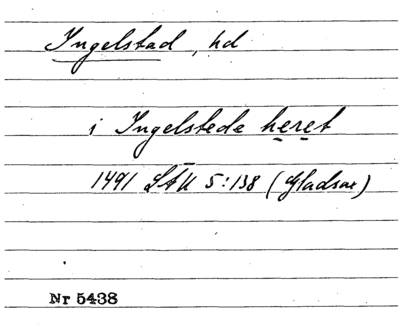 Ingelstad, hd
i Ingelstede heret
1491 LÄU 5:138 (Gladsax)
Nr 5438